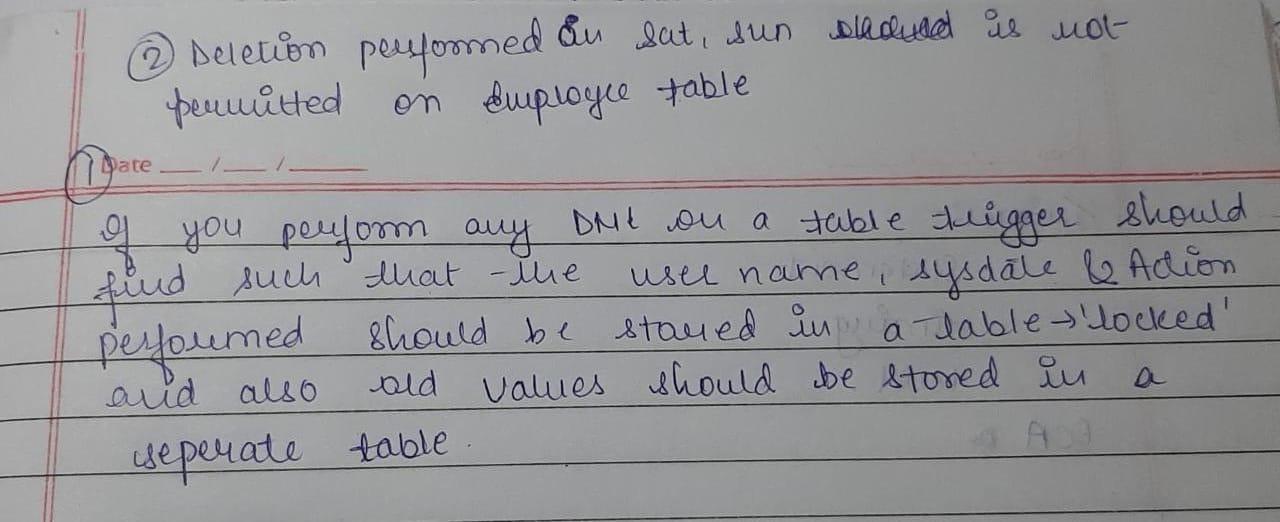 ② Deletion performed on sat, sun is not
permitted on Employee table
① Date __/__/____
If you perform any DML on a table trigger should
find such that the user name, sysdate & Action
performed should be stored in a table → 'locked'
and also old values should be stored in a
seperate table.